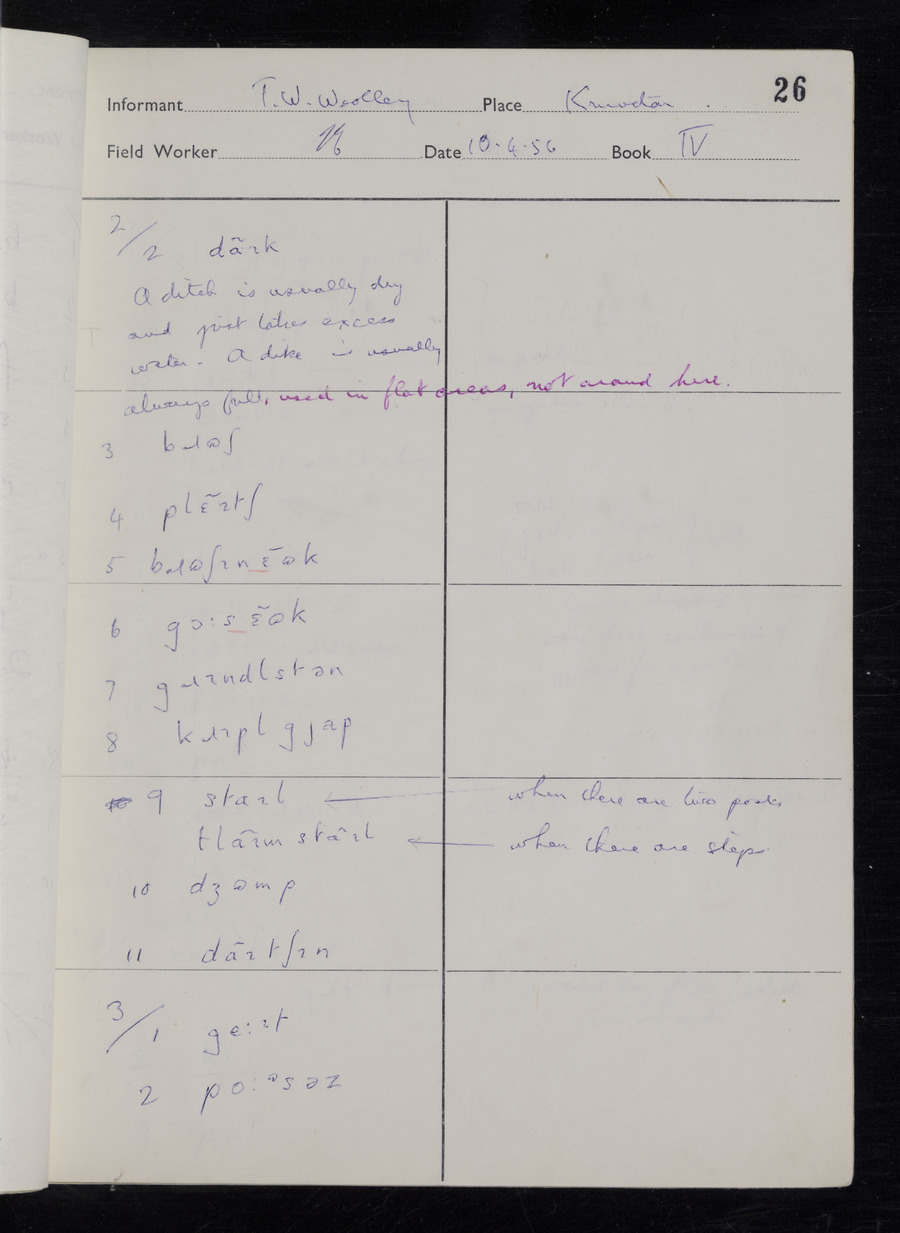 26
Informant T. W. Woolley Place
Field Worker Date 10.4.56 Book IV
2/2 dãɪk
A ditch is usually dry
and just takes excess
water. A dike is usually
always full, used in flat areas, not around here.
3 bɹɷʃ
4 plɛ̃ɪtʃ
5 bɹɷʃɪnɛ̃ɷk
6 gɔ:sɛ̃ɷk
7 gɹɪndlstən
8 kɹɪpl gjap
9 staɪl when there are two posts
tlãɪm stãɪl when there are steps
10 dʒɷmp
11 dãɪtʃɪn
3/1 ge:ɪt
2 po:ᵊsəz